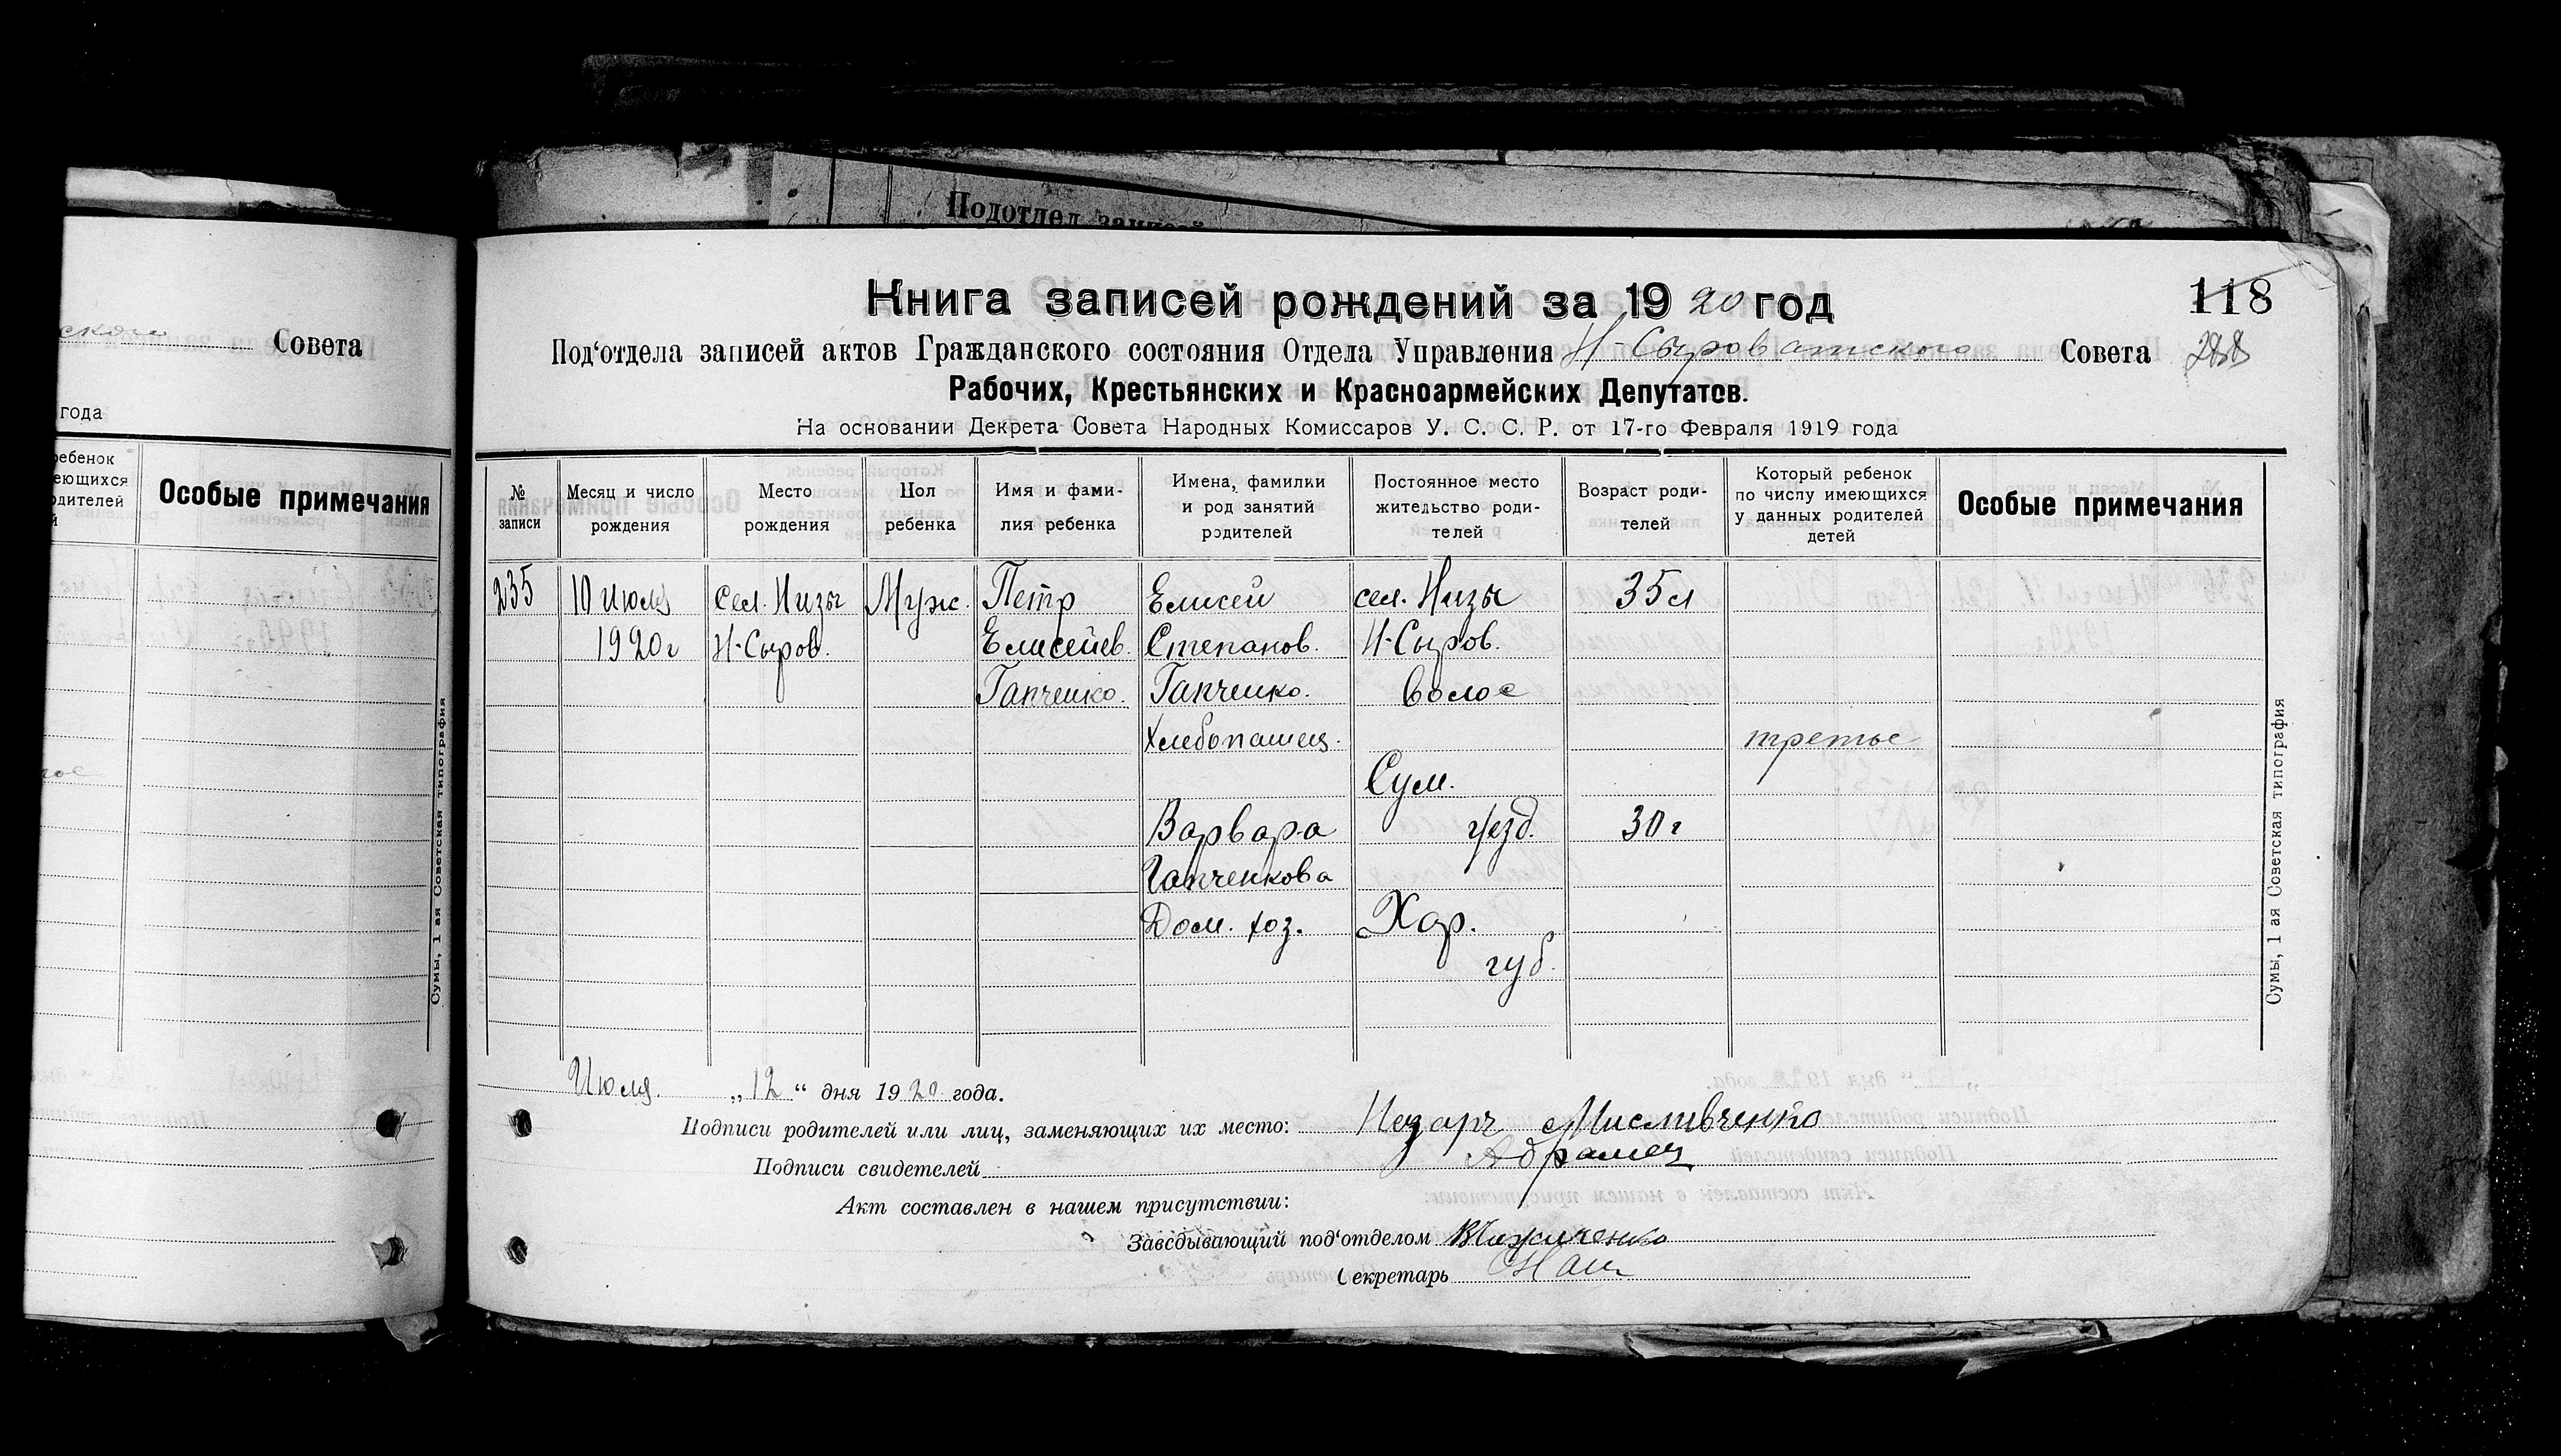 Подотдел записей
ского Совета
года
ребенок
еющихся
одителей
й
Особые примечания
Сумы, 1 ая Советская типография
Книга записей рождений за 1920 год
118
Под‘отдела записей актов Гражданского состояния Отдела Управления Н-Сыроватского Совета
288
Рабочих, Крестьянских и Красноармейских Депутатов.
На основании Декрета Совета Народных Комиссаров У. С. С. Р. от 17-го Февраля 1919 года
№ записи
Месяц и число рождения
Место рождения
Пол ребенка
Имя и фами-
лия ребенка
Имена, фамилки
и род занятий
родителей
Постоянное место
жительство роди-
телей
Возраст роди-
телей
Который ребенок
по числу имеющихся
у данных родителей
детей
Особые примечания
235 10 Июля сел. Низы Муж. Петр Елисей сел. Низы 35 л
1920 г Н-Сыров. Елисеев. Степанов. Н-Сыров.
Гапченко. Гапченко. волос
Хлебопашец. третье
Сум.
Варвара уезд. 30 г
Гапченкова
Дом. хоз. Хар.
губ.
Сумы, 1 ая Советская типография
Июля „12“ дня 1920 года.
Подписи родителей или лиц, заменяющих их место: Назарь
Подписи свидетелей
Акт составлен в нашем присутствии:
Заведывающий под‘отделом
Секретарь